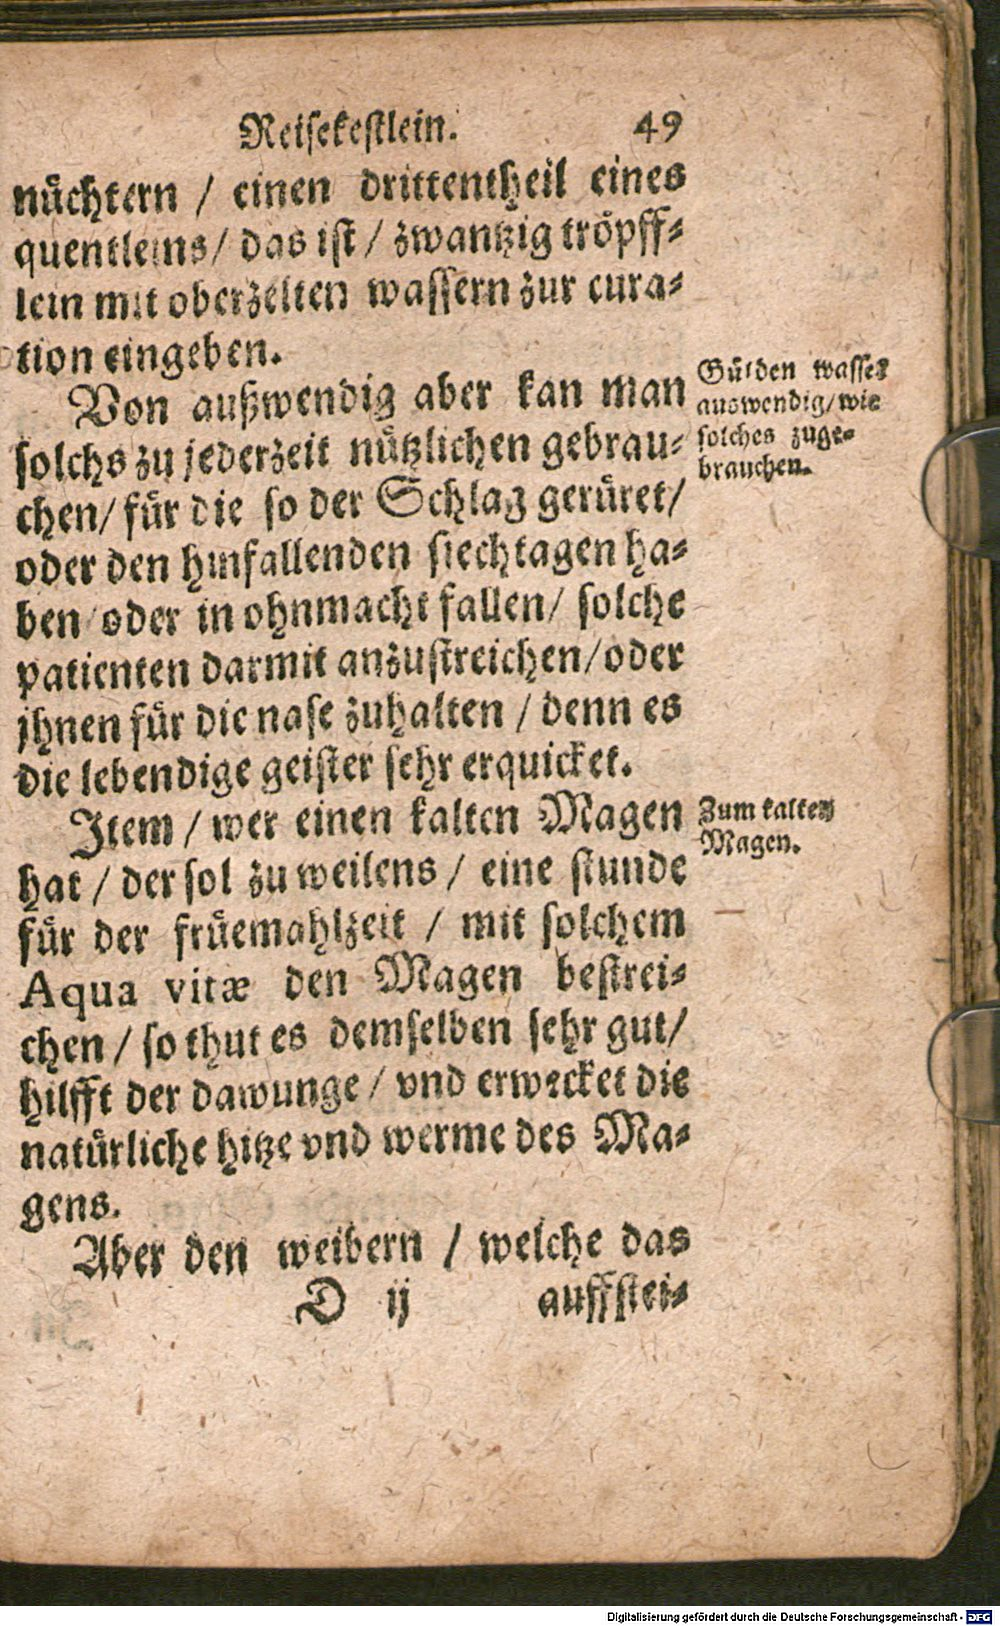 Reisekestlein. 49
nüchtern / einen drittentheil eines
quentleins / das ist / zwantzig tröpff-
lein mit oberzelten wassern zur cura-
tion eingeben.
Von außwendig aber kan man
solchs zu jederzeit nützlichen gebrau-
chen / für die so der Schlag gerüret /
oder den hinfallenden siechtagen ha-
ben / oder in ohnmacht fallen / solche
patienten darmit anzustreichen / oder
jhnen für die nase zuhalten / denn es
die lebendige geister sehr erquicket.
Item / wer einen kalten Magen
hat / der sol zu weilens / eine stunde
für der früemahlzeit / mit solchem
Aqua vitæ den Magen bestrei-
chen / so thut es demselben sehr gut /
hilfft der dawunge / vnd erwecket die
natürliche hitze vnd werme des Ma-
gens.
Aber den weibern / welche das
D ij auffstei-
Gülden wasser
auswendig / wie
solches zuge-
brauchen.
Zum kalten
Magen.
Digitalisierung gefördert durch die Deutsche Forschungsgemeinschaft - DFG